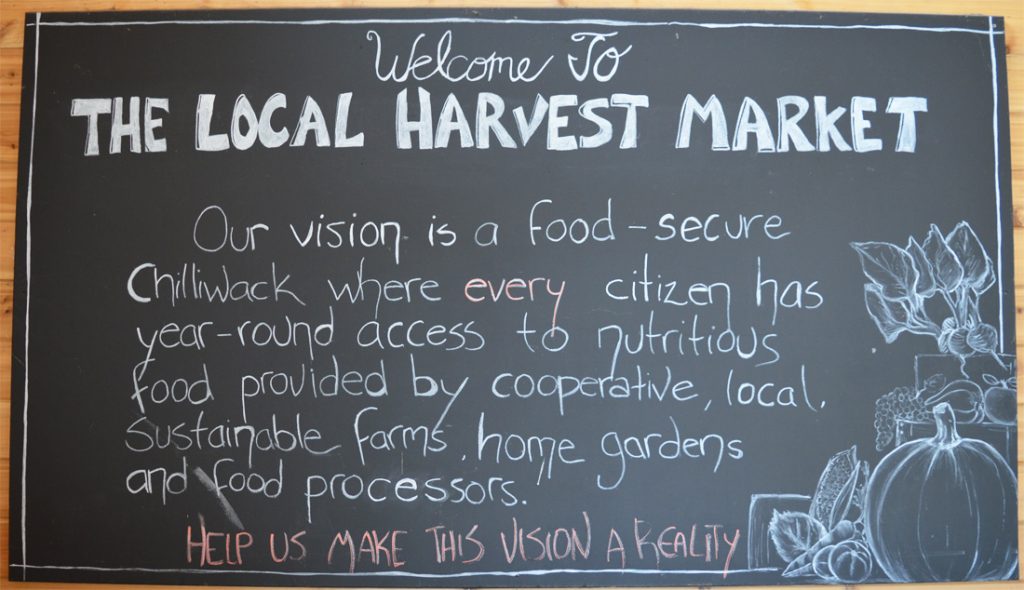 Welcome To
THE LOCAL HARVEST MARKET
Our vision is a food-secure
Chilliwack where every citizen has
year-round access to nutritious
food provided by cooperative, local,
sustainable farms, home gardens
and food processors.
HELP US MAKE THIS VISION A REALITY